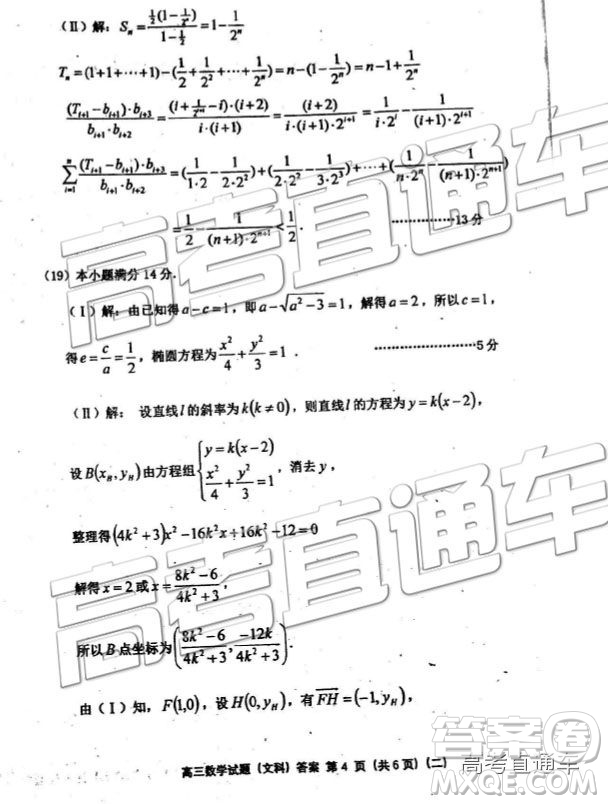 (Ⅱ) 解: S_n = (½(1 - 1/2^n))/(1 - ½) = 1 - 1/2^n
T_n = (1+1+⋯+1) - (1/2 + 1/2² + ⋯ + 1/2^n) = n - (1 - 1/2^n) = n - 1 + 1/2^n
((T_{i+1} - b_{i+1})·b_{i+3})/(b_{i+1}·b_{i+2}) = ((i + 1/2^{i+1} - i)·(i+2))/(i·(i+1)) = (i+2)/(i·(i+1)·2^{i+1}) = 1/(i·2^i) - 1/((i+1)·2^{i+1})
∑_{i=1}^{n} ((T_{i+1} - b_{i+1})·b_{i+3})/(b_{i+1}·b_{i+2}) = (1/(1·2) - 1/(2·2²)) + (1/(2·2²) - 1/(3·2³)) + ⋯ + (1/(n·2^n) - 1/((n+1)·2^{n+1}))
= 1/2 - 1/((n+1)·2^{n+1}) < 1/2. ⋯⋯⋯⋯⋯13 分
(19) 本小题满分 14 分.
(Ⅰ) 解: 由已知得 a-c=1, 即 a-√(a²-3)=1, 解得 a=2, 所以 c=1,
得 e = c/a = 1/2, 椭圆方程为 x²/4 + y²/3 = 1. ⋯⋯⋯⋯⋯5 分
(Ⅱ) 解: 设直线 l 的斜率为 k(k≠0), 则直线 l 的方程为 y=k(x-2),
设 B(x_B, y_H) 由方程组 { y=k(x-2) ; x²/4 + y²/3 = 1, 消去 y,
整理得 (4k²+3)x² - 16k²x + 16k² - 12 = 0
解得 x=2 或 x = (8k²-6)/(4k²+3),
所以 B 点坐标为 ((8k²-6)/(4k²+3), (-12k)/(4k²+3)).
由 (Ⅰ) 知, F(1,0), 设 H(0,y_H), 有 FH = (-1, y_H),
高三数学试题 (文科) 答案 第 4 页 (共 6 页) (二)
高考直通车
高考直通车
高考直通车